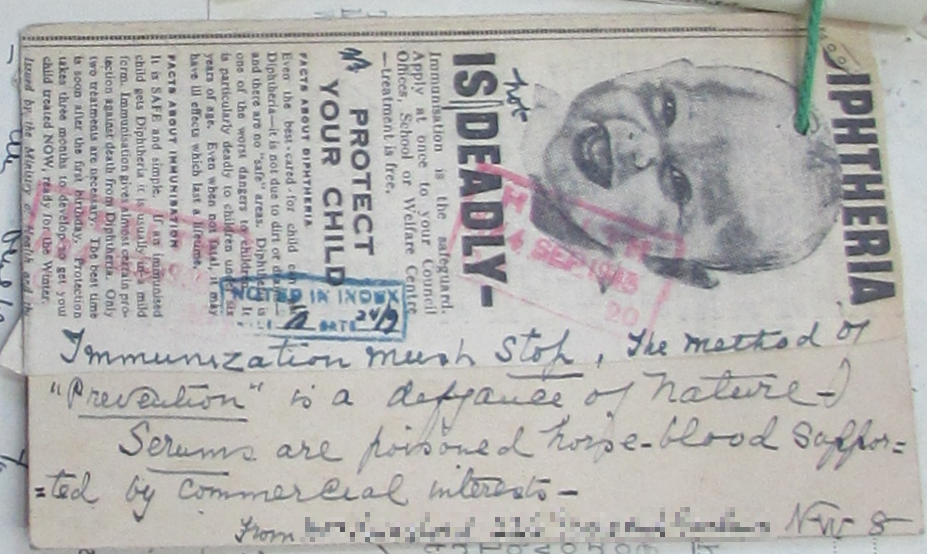 DIPHTHERIA
not
IS DEADLY—
Immunisation is the safeguard.
Apply at once to your Council
Offices, School or Welfare Centre
—treatment is free.
PROTECT
YOUR CHILD
FACTS ABOUT DIPHTHERIA
Even the best-cared-for child can
Diphtheria—it is not due to dirt or
and there are no "safe" areas. Diphtheria is
one of the worst dangers to children. It
is particularly deadly to children under six
years of age. Even when not fatal, it may
have ill effects which last a lifetime.
FACTS ABOUT IMMUNISATION
It is SAFE and simple. If an immunised
child gets Diphtheria it is usually in a mild
form. Immunisation gives almost certain pro-
tection against death from Diphtheria. Only
two treatments are necessary. The best time
is soon after the first birthday. Protection
takes three months to develop so get your
child treated NOW, ready for the Winter.
Issued by the Ministry of Health and the
14 SEP 1945
20
NOTED IN INDEX
DATE 24/9
Immunization must stop, The method of
"Prevention" is a defyance of Nature—
Serums are poisoned horse-blood suppor=
=ted by commercial interests—
From NW 8